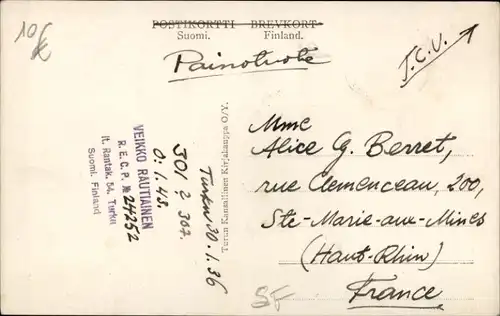 10
POSTIKORTTI BREVKORT
Suomi. Finland.
Painotuote
T.C.V.
Turun Kansallinen Kirjakauppa O.Y.
Turku 30.1.36
301 ? 307.
O: 1.43.
VEIKKO RAUTIAINEN
R. E. C. P. № 24252
It. Rantak. 54. Turku
Suomi. Finland
Mme
Alice G. Berret,
rue Clemenceau, 200,
Ste-Marie-aux-Mines
(Haut-Rhin)
France
SF